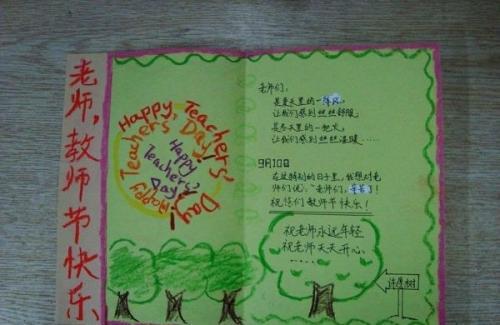 老师,教师节快乐
Happy Teachers' Day!
Happy Teachers' Day!
Happy Teachers' Day!
老师们:
是夏天里的一阵风,
让我们感到丝丝舒服,
是冬天里的一把火,
让我们感到丝丝温暖……
9月10日
在这特别的日子里,我想对老
师们说:“老师们,辛苦了!
祝你们教师节快乐!
祝老师永远年轻
祝老师天天开心
......
许愿树